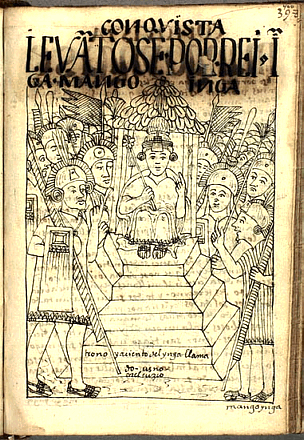 CONQVISTA
LEVĀTOSE·POR·REI·Ī
GA·MANGO INGA
trono y aciento del ynga llama
do - usno
en el cuzco
mango ynga